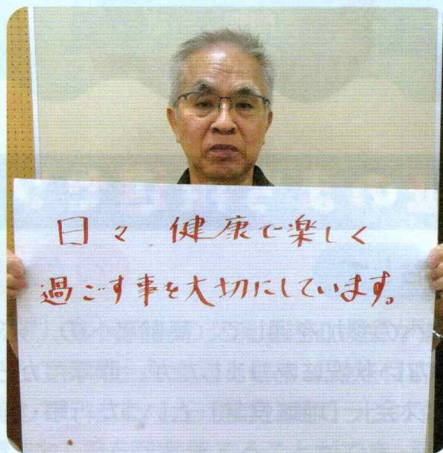 日々 健康で楽しく
過ごす事を大切にしています。